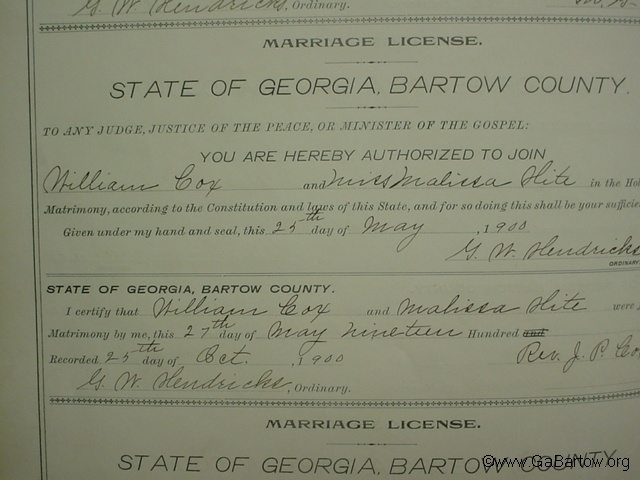 G. W. Hendricks, Ordinary.
MARRIAGE LICENSE.
STATE OF GEORGIA, BARTOW COUNTY.
TO ANY JUDGE, JUSTICE OF THE PEACE, OR MINISTER OF THE GOSPEL:
YOU ARE HEREBY AUTHORIZED TO JOIN
William Cox and Miss Malissa Hite in the Hol
Matrimony, according to the Constitution and laws of this State, and for so doing this shall be your sufficie
Given under my hand and seal, this 25th day of May , 1900.
G. W. Hendricks
ORDINARY
STATE OF GEORGIA, BARTOW COUNTY.
I certify that William Cox and Malissa Hite were
Matrimony by me, this 27th day of May Nineteen Hundred and
Recorded 25th day of Oct. , 1900 Rev. J. P. Co
G. W. Hendricks, Ordinary.
MARRIAGE LICENSE.
STATE OF GEORGIA, BARTOW COUNTY.
©www.GaBartow.org